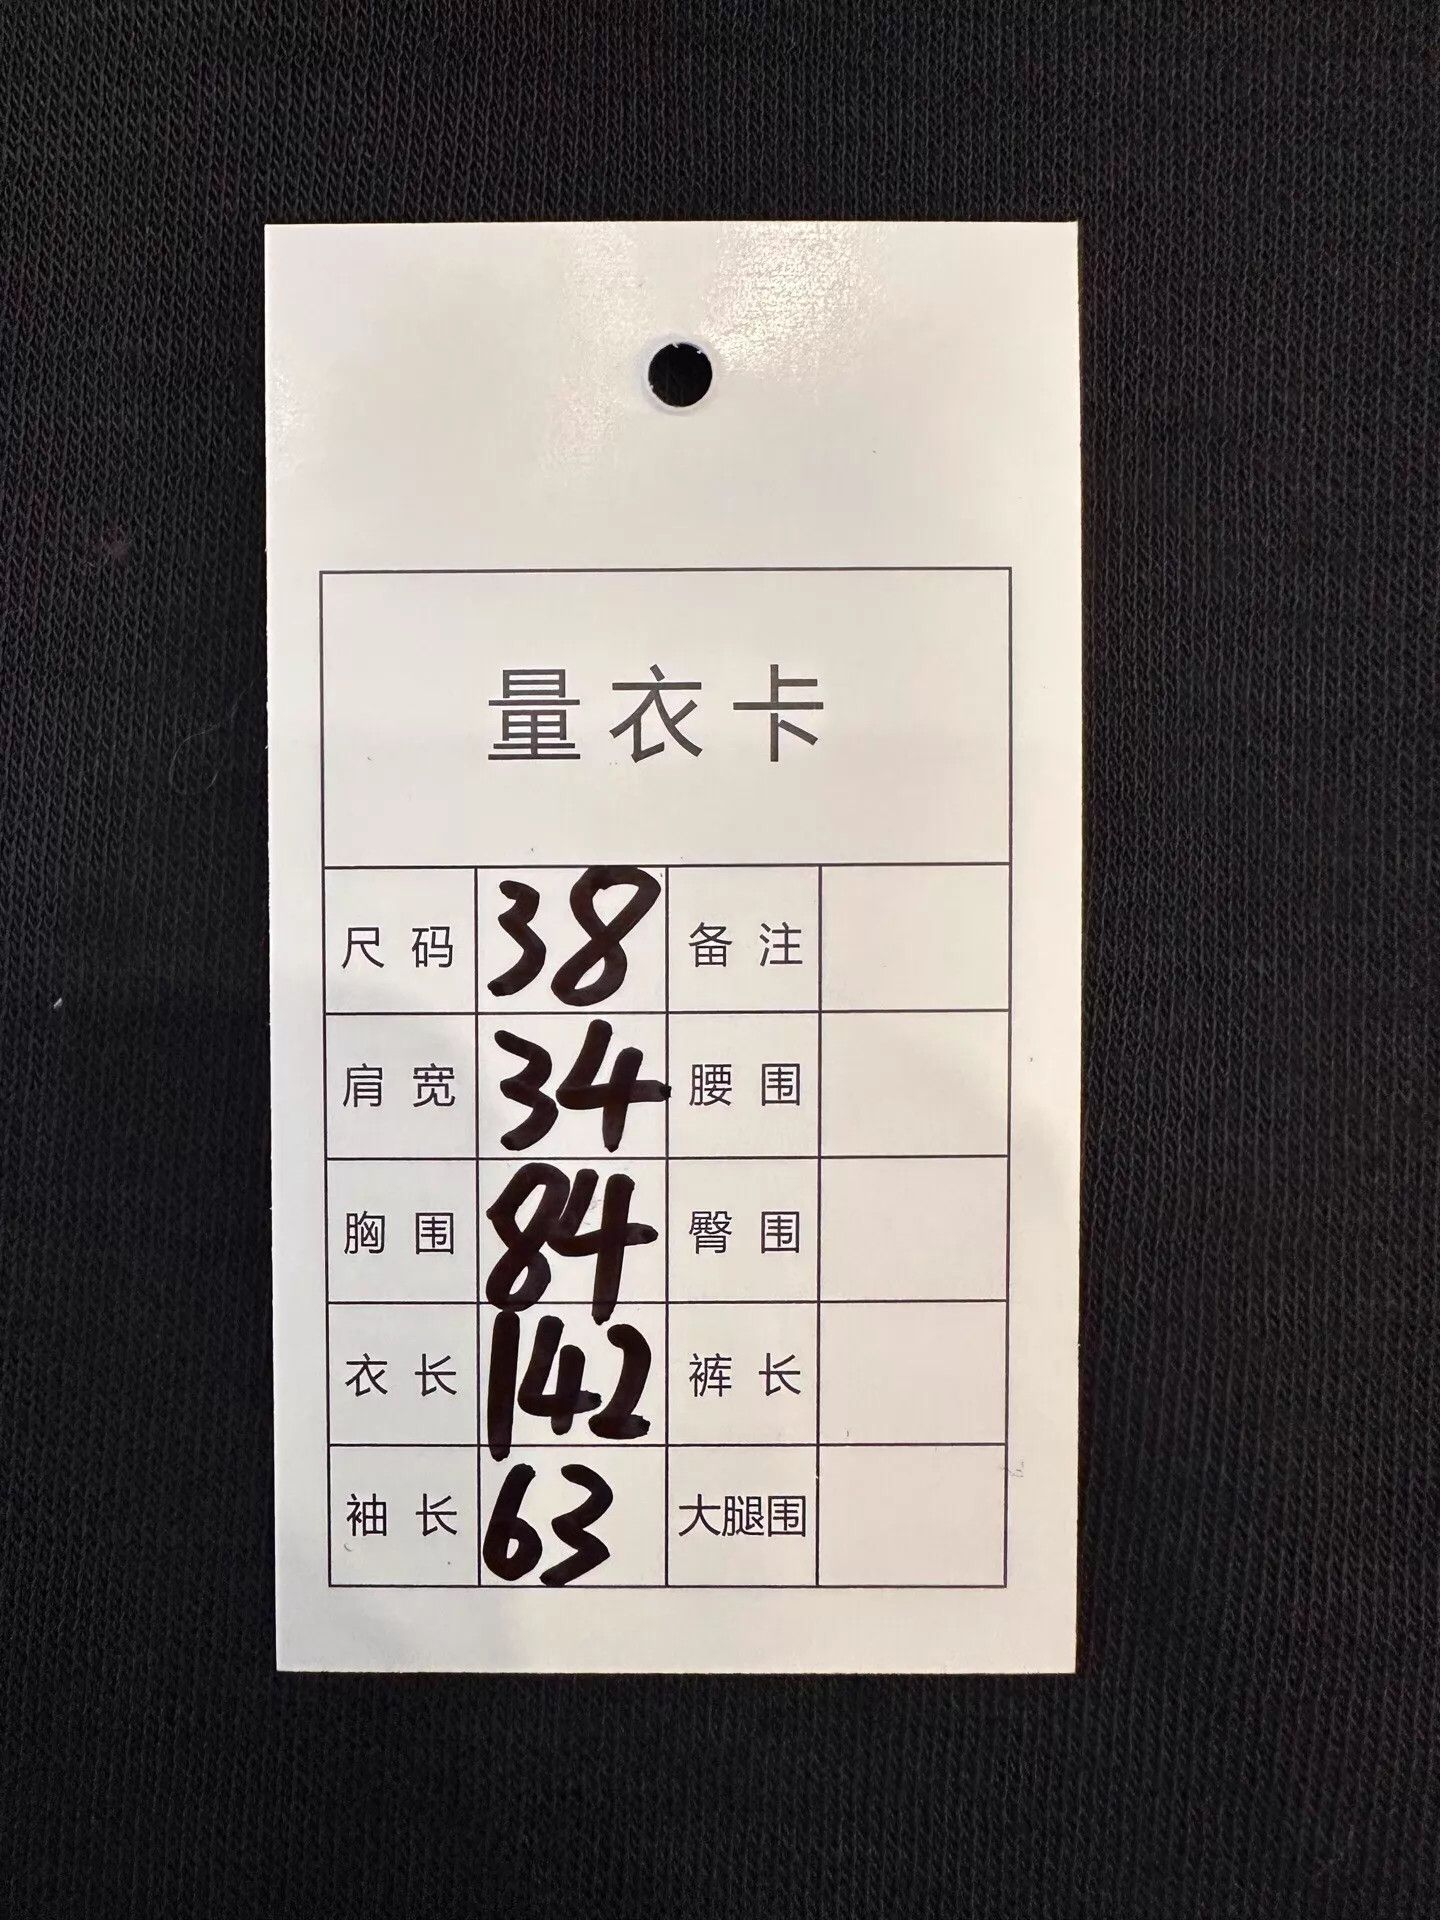 量衣卡
尺码 38 备注
肩宽 34 腰围
胸围 84 臀围
衣长 142 裤长
袖长 63 大腿围